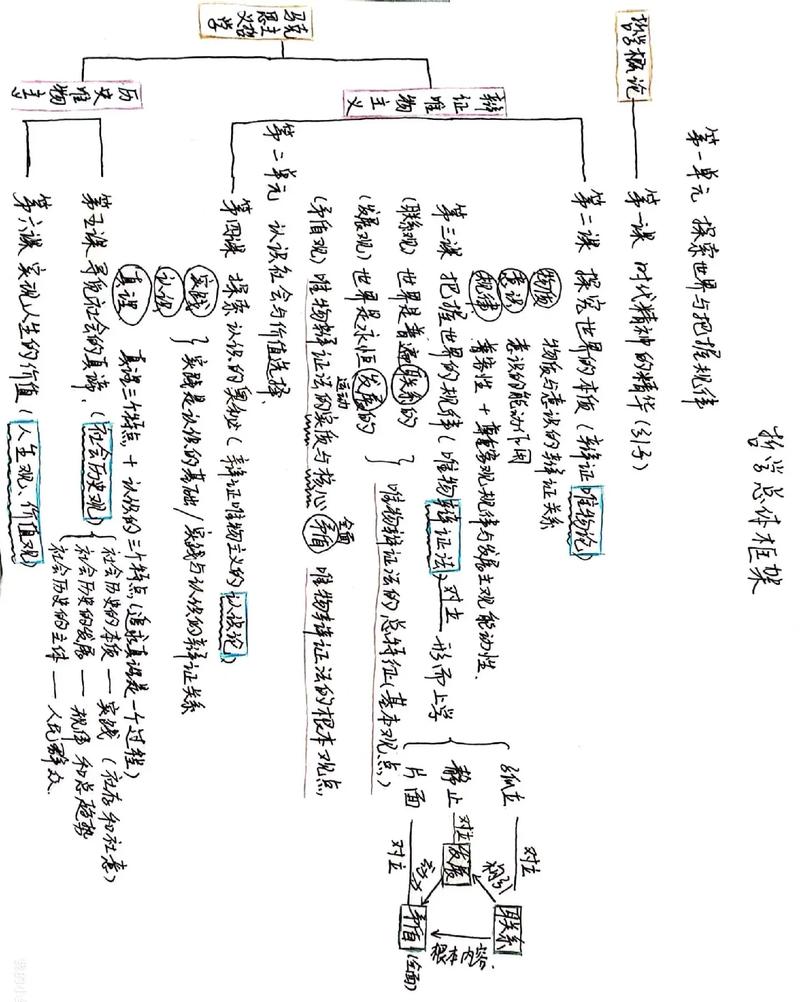 哲学总体框架
第一单元 探索世界与把握规律
哲学概论
第一课 时代精神的精华(引子)
马克思主义哲学
辩证唯物主义
第二课 探究世界的本质(辩证唯物论)
物质 物质与意识的辩证关系
意识 意识的能动作用
规律 普客性 + 尊重客观规律与发挥主观能动性.
第三课 把握世界的规律(唯物辩证法)对立 形而上学
孤立
静止
片面
对立
对立
对立
联系
发展
矛盾
(全面)
根本内容.
(联系观) 世界是普遍联系的
(发展观) 世界是永恒发展的
运动
唯物辩证法的总特征(基本观点)
(矛盾观) 唯物辩证法的实质与核心 矛盾
全面
唯物辩证法的根本观点
第二单元 认识社会与价值选择.
第四课 探索认识的奥秘(辩证唯物主义的认识论)
实践
认识
实践是认识的基础/实践与认识的辩证关系
真理 真理三个特点 + 认识的三个特点(追求真理是一个过程)
历史唯物主义
第五课 寻觅社会的真谛.(社会历史观)
社会历史的本质 — 实践 (社存和社意)
社会历史的发展 — 规律和总趋势
社会历史的主体 — 人民群众.
第六课 实现人生的价值(人生观、价值观)